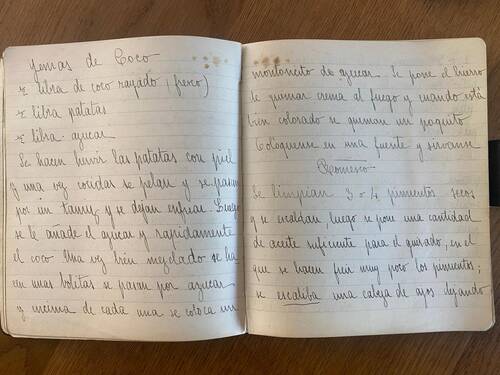 Yemas de Coco
1 libra de coco rayado (fresco)
1 libra patatas
1 libra azucar
Se hacen hervir las patatas con piel
y una vez cocidas se pelan y se pasan
por un tamiz y se dejan enfriar. Luego
se le añade el azucar y rapidamente
el coco. Una vez bien mezclado se ha-
cen unas bolitas se pasan por azucar
y encima de cada una se coloca un
montoncito de azucar. Se pone el hierro
de quemar crema al fuego y cuando está
bien colorado se queman un poquito
Colóquense en una fuente y sirvanse
Romesco
Se limpian 3 o 4 pimientos secos
y se escaldan, luego se pone una cantidad
de aceite suficiente para el guisado, en el
que se hacen freir muy poco los pimientos;
se escaliba una cabeza de ajos dejando